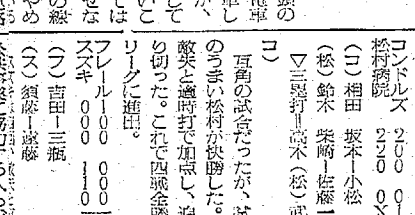 頭の
電車
車し
が、
して
いこ
では
せな
の線
やめ
コンドルズ 200 01
松村病院 220 0X
（コ）相田 坂本―小松
（松）鈴木 柴崎―佐藤一
▽三塁打＝高木（松）武
コ）
互角の試合だったが、試
のうまい松村が快勝した。
敵失と適時打で加点し、追
り切った。これで四戦全勝
リーグに進出。
フレール100 000
スズキ 000 110
（フ）吉田―三瓶
（ス）須藤―遠藤